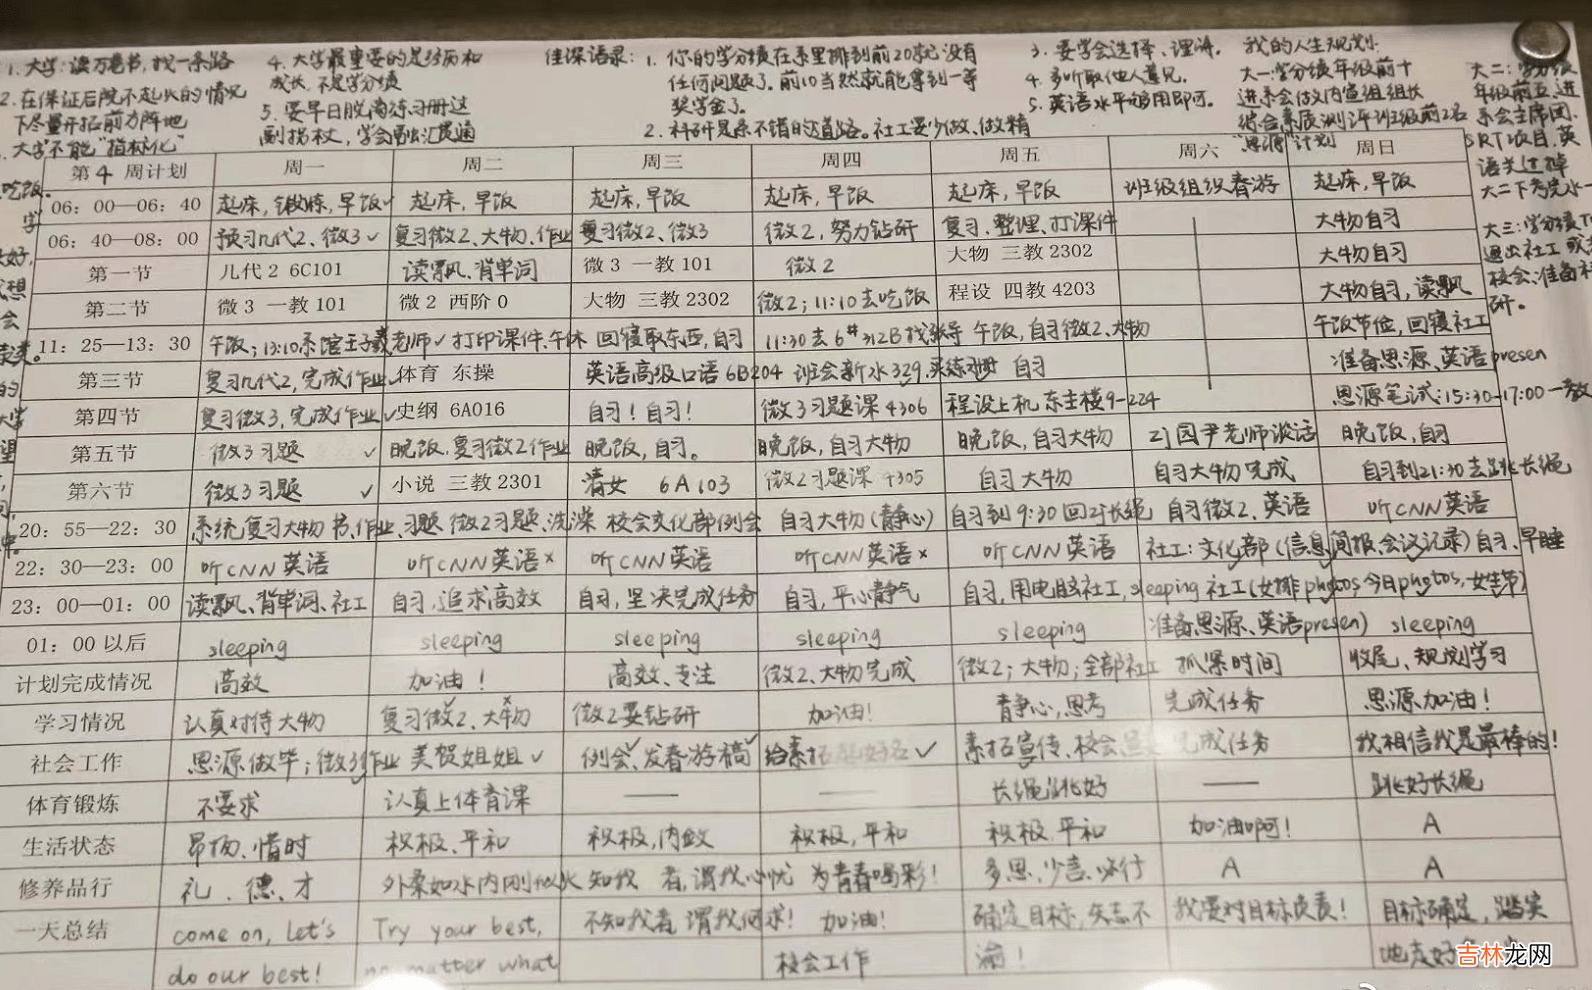 1. 大学:读万卷书,找一条路
2. 在保证后院不起火的情况
下尽量开拓前方阵地
大学不能"指标化"
4. 大学最重要的是经历和
成长,不是学分绩
5. 要早日脱离练习册这
副拐杖,学会融汇贯通
佳深语录:1. 你的学分绩在系里排到前20就没有
任何问题了。前10当然就能拿到一等
奖学金了。
2. 科研是条不错的道路。社工要少做、做精
3. 要学会选择、理讲。
4. 多听取他人意见。
5. 英语水平够用即可。
我的人生规划:
大一:学分绩年级前十
进系会做内宣组组长
综合素质测评班级前2名
"思源"计划
大二:学分绩
年级前五,进
系会主席团,
SRT项目,英
语关过掉
大三:学分绩
退出社工 或
校会、准备科
研。
第4周计划 周一 周二 周三 周四 周五 周六 周日
06:00—06:40 起床,锻炼,早饭✓ 起床,早饭 起床,早饭 起床,早饭 起床,早饭 班级组织春游 起床,早饭
06:40—08:00 预习几代2、微3✓ 复习微2、大物、作业 复习微2、微3 微2,努力钻研 复习,整理,打课件 大物自习
第一节 几代2 6C101 读飘、背单词 微3 一教101 微2 大物 三教2302 大物自习
第二节 微3 一教101 微2 西阶0 大物 三教2302 微2;11:10去吃饭 程设 四教4203 大物自习,读飘
11:25—13:30 午饭;13:10系馆王子羲老师✓ 打印课件、午休 回寝取东西,自习 11:30去6#312B找张导 午饭,自习微2、大物 午饭节俭,回寝社工
第三节 复习几代2,完成作业✓ 体育 东操 英语高级口语6B204 班会新水329,买练习册 自习 准备思源、英语presen
第四节 复习微3,完成作业✓ 史纲 6A016 自习!自习! 微3习题课4306 程设上机 东主楼9-224 思源笔试:15:30-17:00一教
第五节 微3习题 ✓ 晚饭,复习微2作业 晚饭,自习。 晚饭,自习大物 晚饭,自习大物 园尹老师谈话 晚饭,自习
第六节 微3习题 ✓ 小说 三教2301 清女 6A103 微2习题课 4305 自习大物 自习大物完成 自习到21:30去跳长绳
20:55—22:30 系统复习大物 书、作业、习题 微2习题、洗澡 校会文化部例会 自习大物(静心) 自习到9:30回 长绳 自习微2、英语 听CNN英语
22:30—23:00 听CNN英语 听CNN英语× 听CNN英语 听CNN英语× 听CNN英语 社工:文化部(信息简报,会议记录) 自习、早睡
23:00—01:00 读飘、背单词、社工 自习,追求高效 自习,坚决完成任务 自习,平心静气 自习,用电脑社工,sleeping 社工(女排photos今日photos,女生节)
01:00以后 sleeping sleeping sleeping sleeping sleeping 准备思源、英语presen) sleeping
计划完成情况 高效 加油! 高效、专注 微2、大物完成 微2;大物;全部社工 抓紧时间 收尾、规划学习
学习情况 认真对待大物 复习微2、大物 微2要钻研 加油! 静心,思考 完成任务 思源加油!
社会工作 思源做毕;微3作业 美贺姐姐✓ 例会✓、发春游稿✓ 给素拓 ✓ 素拓宣传、校会 完成任务 我相信我是最棒的!
体育锻炼 不要求 认真上体育课 —— —— 长绳跳好 —— 跳好长绳
生活状态 昂扬、惜时 积极、平和 积极,内敛 积极,平和 积极,平和 加油啊! A
修养品行 礼、德、才 外柔如水内刚似火 知我 者,谓我心忧 为青春喝彩! 多思、少言、必行 A A
一天总结 come on, Let's Try your best, 不知我者,谓我何求! 加油! 确定目标,矢志不 我要对目标负责! 目标确定,踏实
do our best! no matter what 校会工作 渝! 地走好
吉林龙网